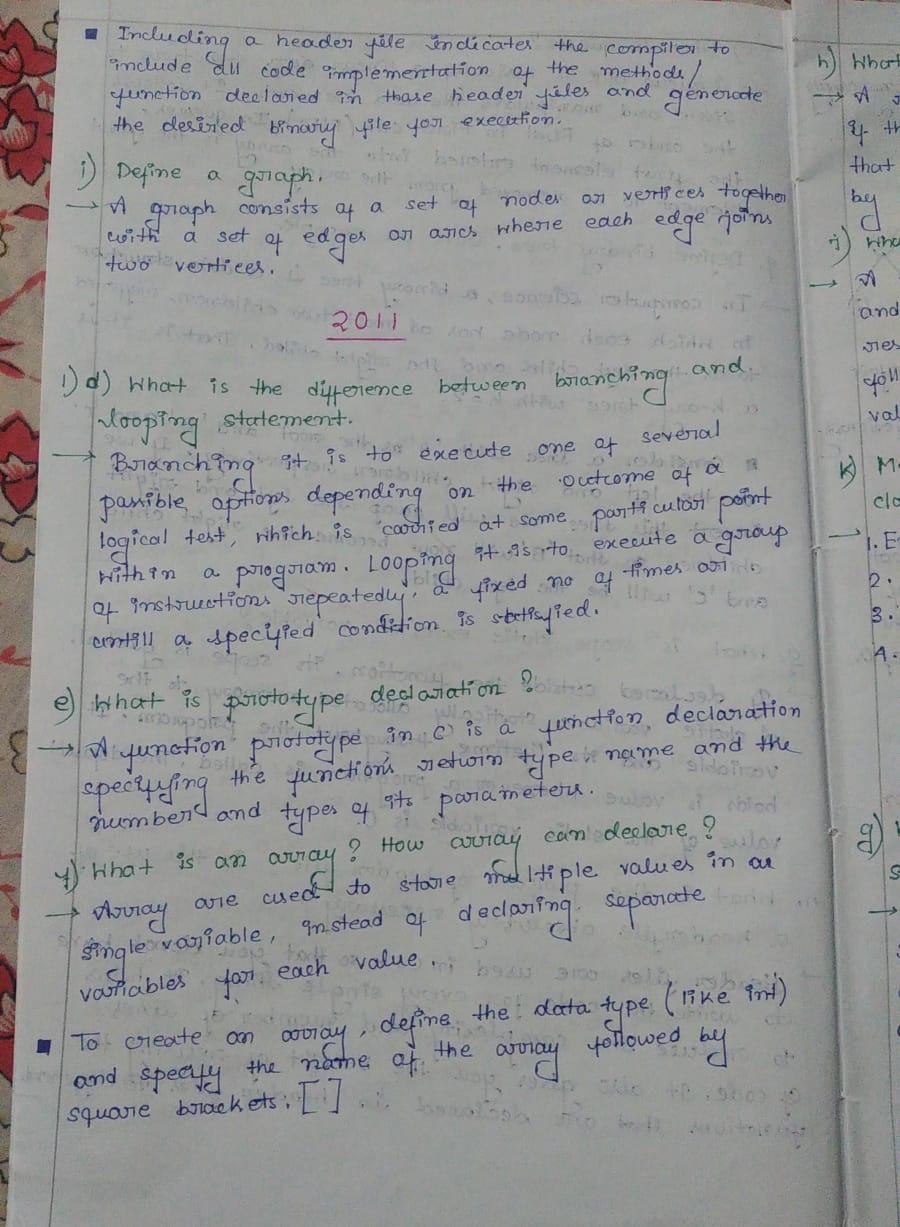 ▪ Including a header file indicates the compiler to
include all code implementation of the methods/
function declared in those header files and generate
the desired binary file for execution.
i) Define a graph.
→ A graph consists of a set of nodes or vertices together
with a set of edges or arcs where each edge joins
two vertices.
2011
1) d) What is the difference between branching and
looping statement.
→ Branching it is to execute one of several
possible options depending on the outcome of a
logical test, which is carried at some particular point
within a program. Looping it is to execute a group
of instructions repeatedly, a fixed no of times or
untill a specified condition is satisfied.
e) What is prototype declaration?
→ A function prototype in C is a function declaration
specifying the function's return type name and the
number and types of its parameters.
f) What is an array? How array can declare?
→ Array are used to store multiple values in a
single variable, instead of declaring separate
variables for each value.
▪ To create an array, define the data type (like int)
and specify the name of the array followed by
square brackets. []
h) What
→ A
if th
that
by
j) Wha
→ A
and
ries
foll
val
k) M
clo
→ 1. E
2.
3.
4.
g)
s
→